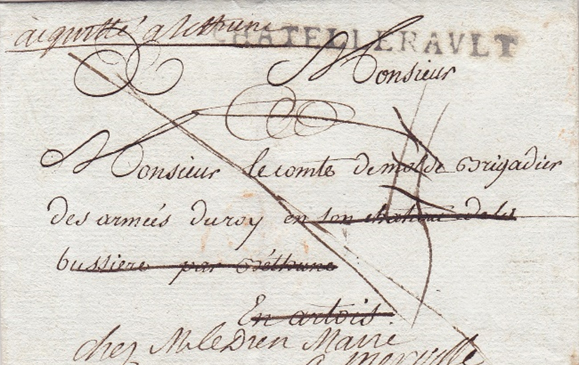 acquitté a bethune
CHATELLERAULT
Monsieur
Monsieur le comte de molde Brigadier
des armées du roy en son chateau de la
bussiere par Béthune
En artois.
chez Mr le Dren Maire
a merville